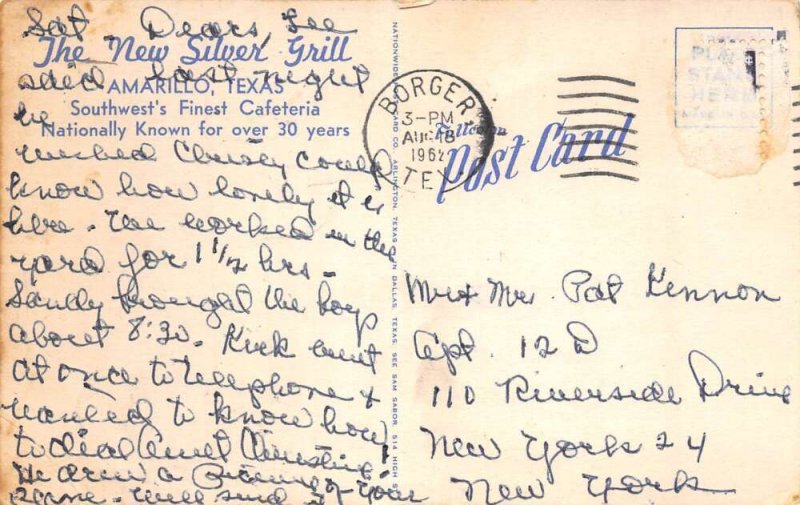 Sat. Dears, Lee
The New Silver Grill
said last night
AMARILLO, TEXAS
Southwest's Finest Cafeteria
he
Nationally Known for over 30 years
wished Christy could
know how lovely it is
here. We worked in the
yard for 1 1/2 hrs -
Sandy brought the boys
about 8:30. Kirk went
at once to telephone &
wanted to know how
to dial Aunt Christine
He drew a Picture of your
plane. Will send it
BORGER
3-PM
AUG 18
1962
TEX
PLACE
STAMP
HERE
Post Card
Mr & Mrs. Pat Kennon
Apt. 12 D
110 Riverside Drive
New York 24
New York